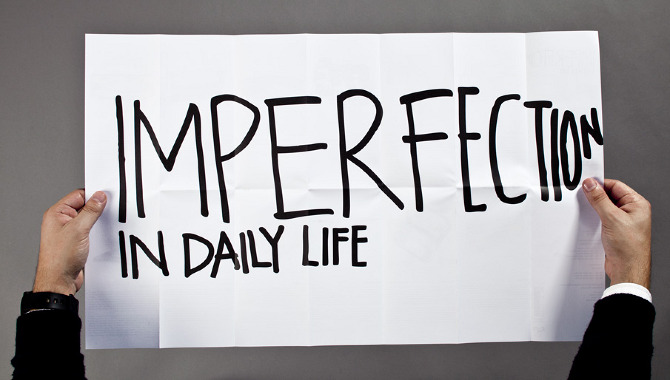 IMPERFECTION
IN DAILY LIFE